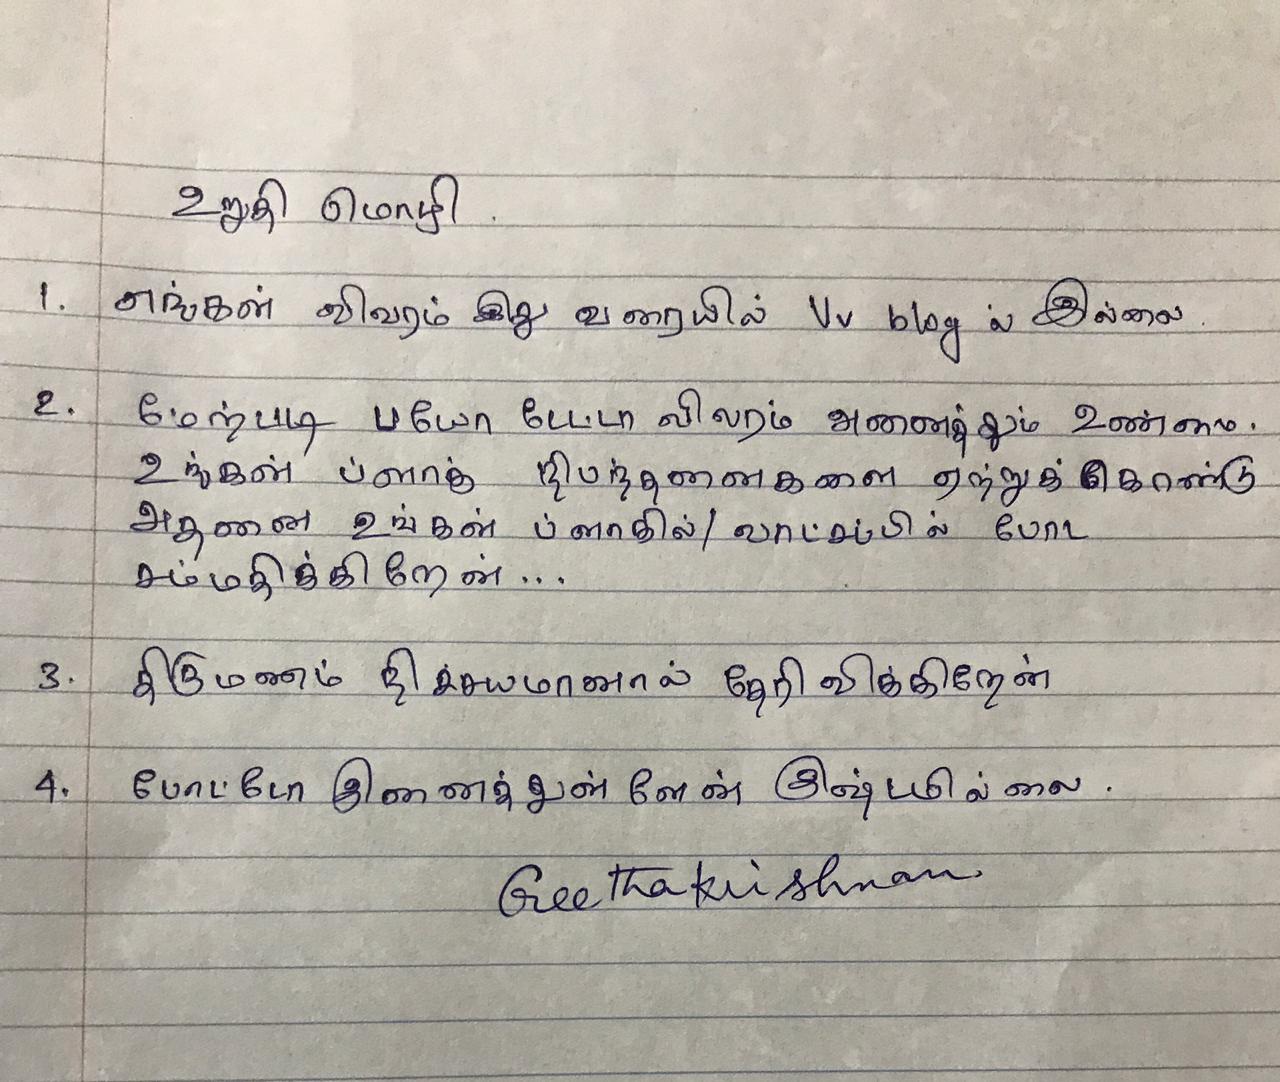 உறுதி மொழி.
1. எங்கள் விவரம் இது வரையில் Vv blog ல் இல்லை.
2. மேற்படி பயோ டேட்டா விவரம் அனைத்தும் உண்மை.
உங்கள் ப்ளாக் நிபந்தனைகளை ஏற்றுக் கொண்டு
அதனை உங்கள் ப்ளாகில்/ வாட்சப்பில் போட
சம்மதிக்கிறேன்...
3. திருமணம் நிச்சயமானால் தேரிவிக்கிறேன்
4. போட்டோ இணைத்துள்ளேன் இஷ்டமில்லை.
Geethakrishnan.